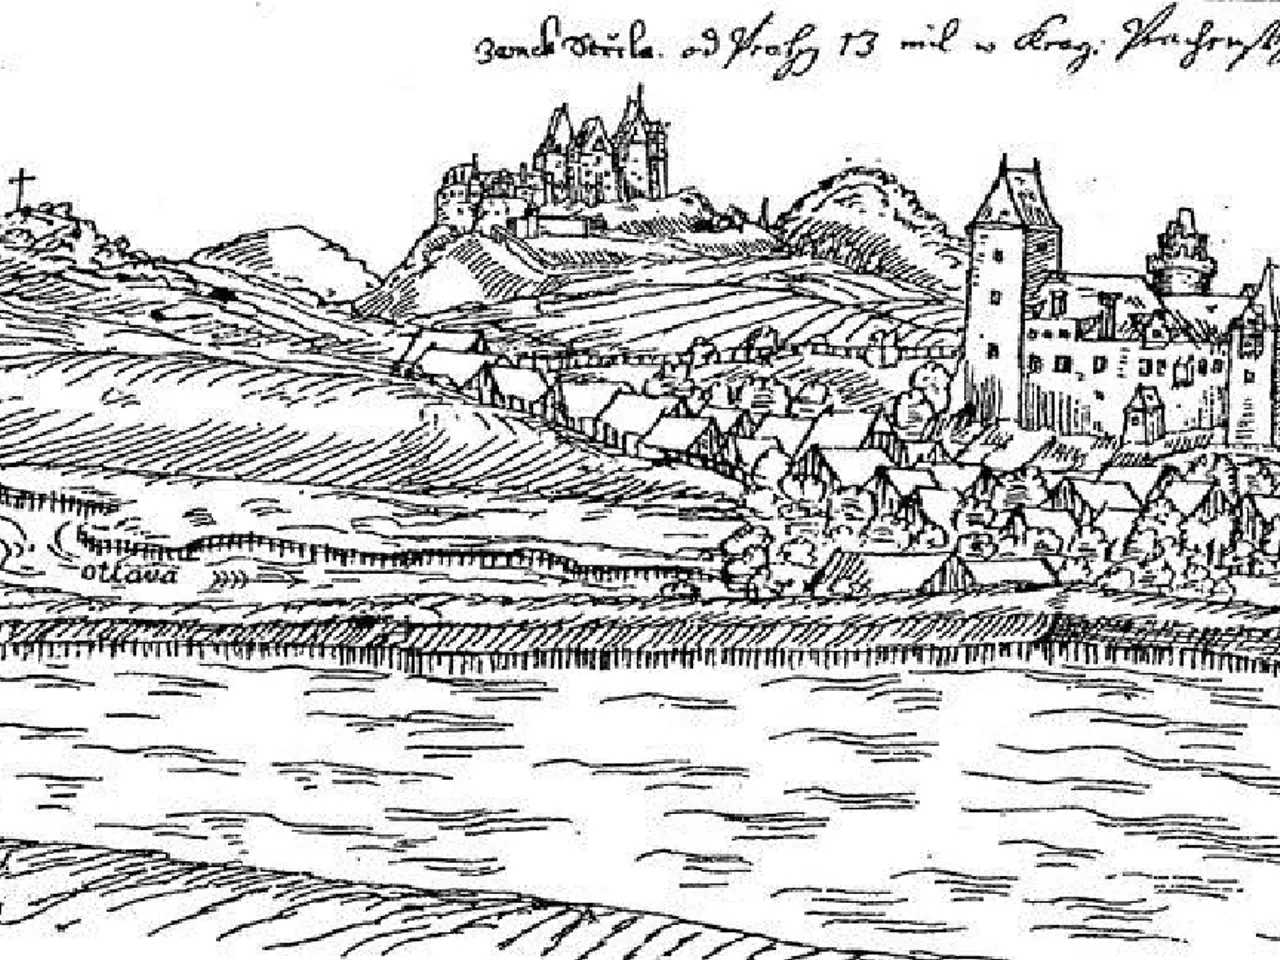 Zamek Střela. od Prahy 13 mil w Kragi. Prachensk
ottava